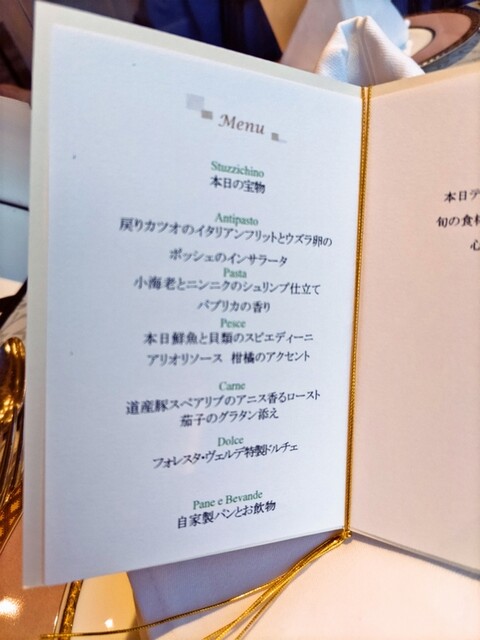 Menu
Stuzzichino
本日の宝物
Antipasto
戻りカツオのイタリアンフリットとウズラ卵の
ポッシェのインサラータ
Pasta
小海老とニンニクのシュリンプ仕立て
パプリカの香り
Pesce
本日鮮魚と貝類のスピエディーニ
アリオリソース 柑橘のアクセント
Carne
道産豚スペアリブのアニス香るロースト
茄子のグラタン添え
Dolce
フォレスタ・ヴェルデ特製ドルチェ
Pane e Bevande
自家製パンとお飲物
本日デ
旬の食材
心